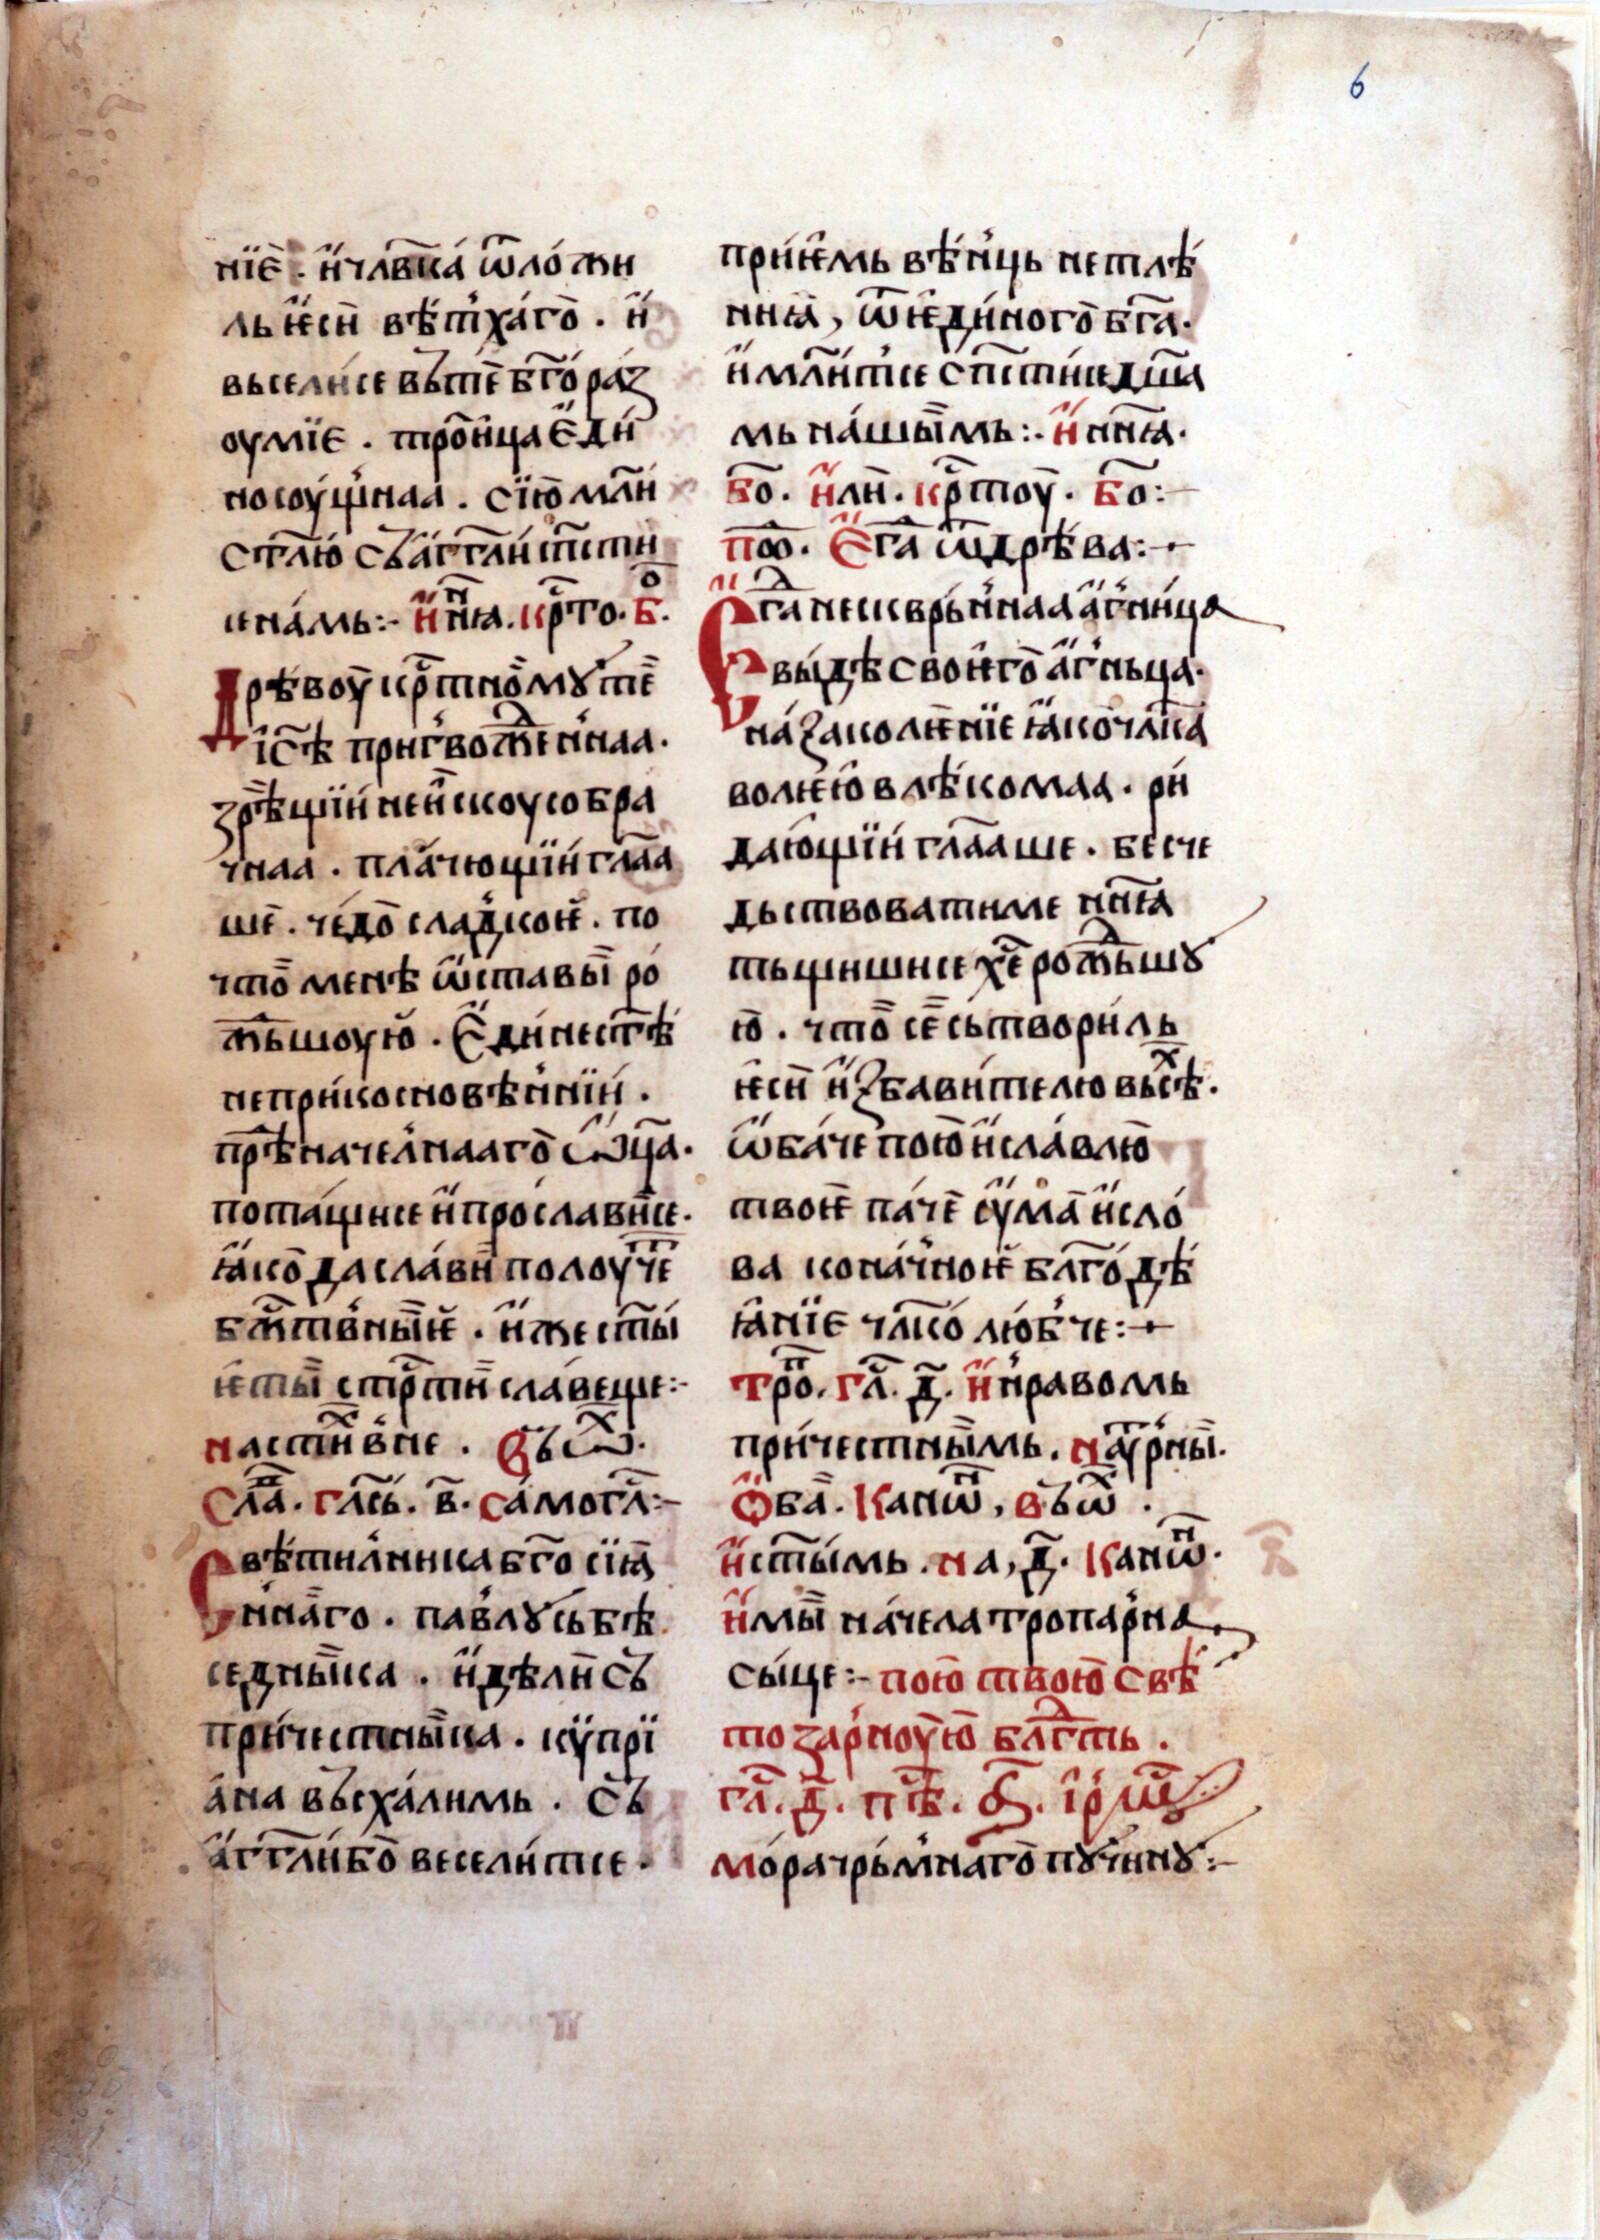 6
нїе҆ . и҆ чл҃вка́ ѿло́жи
ль ѥ҆си̏ вѣ́тхаго̀ . и҆
вьсели́се въ те̏ бг҃ора́з
оумїе . тро́ица е҆ди
носоу́щнаа . сїю̀ мл҃и
ст҃лю̀ съ а҆гг҃ли сп҃сти
се на́мь :- и҆ нн҃ꙗ . крⷭ҇то . б҃ⷪ .
Дрѣвоу̀ крⷭ҇тно́мꙋ те̏
і҆с҃ѣ пригвождеⷩ҇наа .
зре̏щїи неи̏скоусобра
чнаа . пла́чющїи гл҃аа
ше̏ . че́до̀ сла́дкоѥ . по
что̏ мене ѡ҆ставы̏ ро́
ждьшоую̀ . е҆ди́не ст҃ѣ
неприкосновѣ́ннїи .
прѣ̏начелнааго̀ ѡ҆ц҃а .
пота́щисе и҆ просла́висе .
ꙗ҆ко̀ да сла́ви̏ полоу́че
бжⷭ҇твны̏ѥ . и҆же ст҃ы
ѥ҆ ты̏ стрⷭ҇ти̏ сла́веще :-
на стиⷯвⷩе . Въ ѡⷯ .
Сла̏ . гла́сь . в҃ . само́гл҃ :-
Свѣ́тилника бг҃осїꙗ̀
нна̏го . па́влꙋ сьбѣ
седны̏ка . и҆ дѣли̏ съ
приче́стны̏ка . кѵ̈прї
а́на въсха́лимь . съ
а҆гг҃ли бо̀ весели́тсе .
прїѥ́мь вѣ́нць нетлѣ́
ниꙗ̀ , ѿ ѥ҆ди́ного̀ б҃га .
и҆ мл҃и́тсе сп҃сти́се дш҃а
мь на́шы̏мь :- и҆ нн҃ꙗ .
б҃о . и҆ли̏ . крⷭ҇тоу̀ . б҃о :-
поⷣ . Е҆гⷣа ѿ дрѣ́ва :-
Е҆гⷣа несквръ́ннаа а҆гни́ца
вы́дѣ своѥго̀ а҆гньца .
на́ заколѥ́нїе ꙗ҆ко̀ чл҃ка́
волѥю̀ влѣ́комаа . ри́
даю́щїи гл҃ааше . бесче
дьствовати ме нн҃ꙗ
тьщишисе хе҃ рождьшꙋ
ю̀ . что̏ се̏ сьтвори́ль
ѥ҆си̏ и҆збави́телю вьсѣⷯ .
ѡ҆ба́че пою̀ и҆ сла́влю̀
твоѥ̀ па́че̏ оу҆ма̏ и҆ сло́
ва коначноѥ̀ бл҃года̀ѣ
ꙗ҆нїе чл҃ко лю́бче :-
тро̏ⷫ . гл҃ . д҃ . и҆ нраво́мь
приче́стны̏мь . на ѹ҆́трны̏ .
Ѻ҆ба̏ . Каноⷩ , въ ѡⷯ .
и҆ ст҃ы́мь . на , д҃ . Каноⷩ .
и҆мы̏ на́чела тропа́рна
сы́це :- пою̀ твою̀ свѣ́
тозарноую̀ бл҃гⷣть .
гл҃ . д҃ . пѣⷭ . а҃ . і҆рмоⷭ .
мо́ра чрь́мнаго̀ пꙋчинꙋ :-